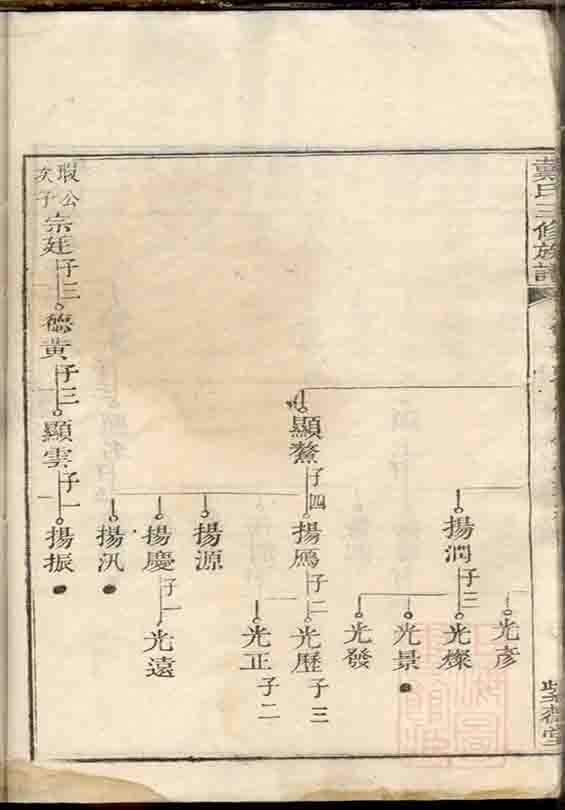 戴氏三修族譜
光彥
揚潤 子三
光燦
光景
光發
顯鰲 子四
揚鴈 子二
光歷 子三
光正 子二
揚源
揚慶 子一
光遠
揚汎
瑕公次子
宗廷 子三
德黃 子三
顯雲 子一
揚振